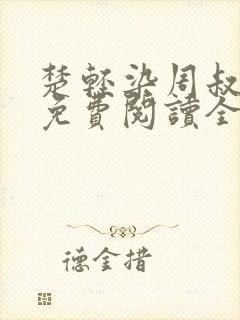 楚輕染周叔
免費閱讀全
德金措